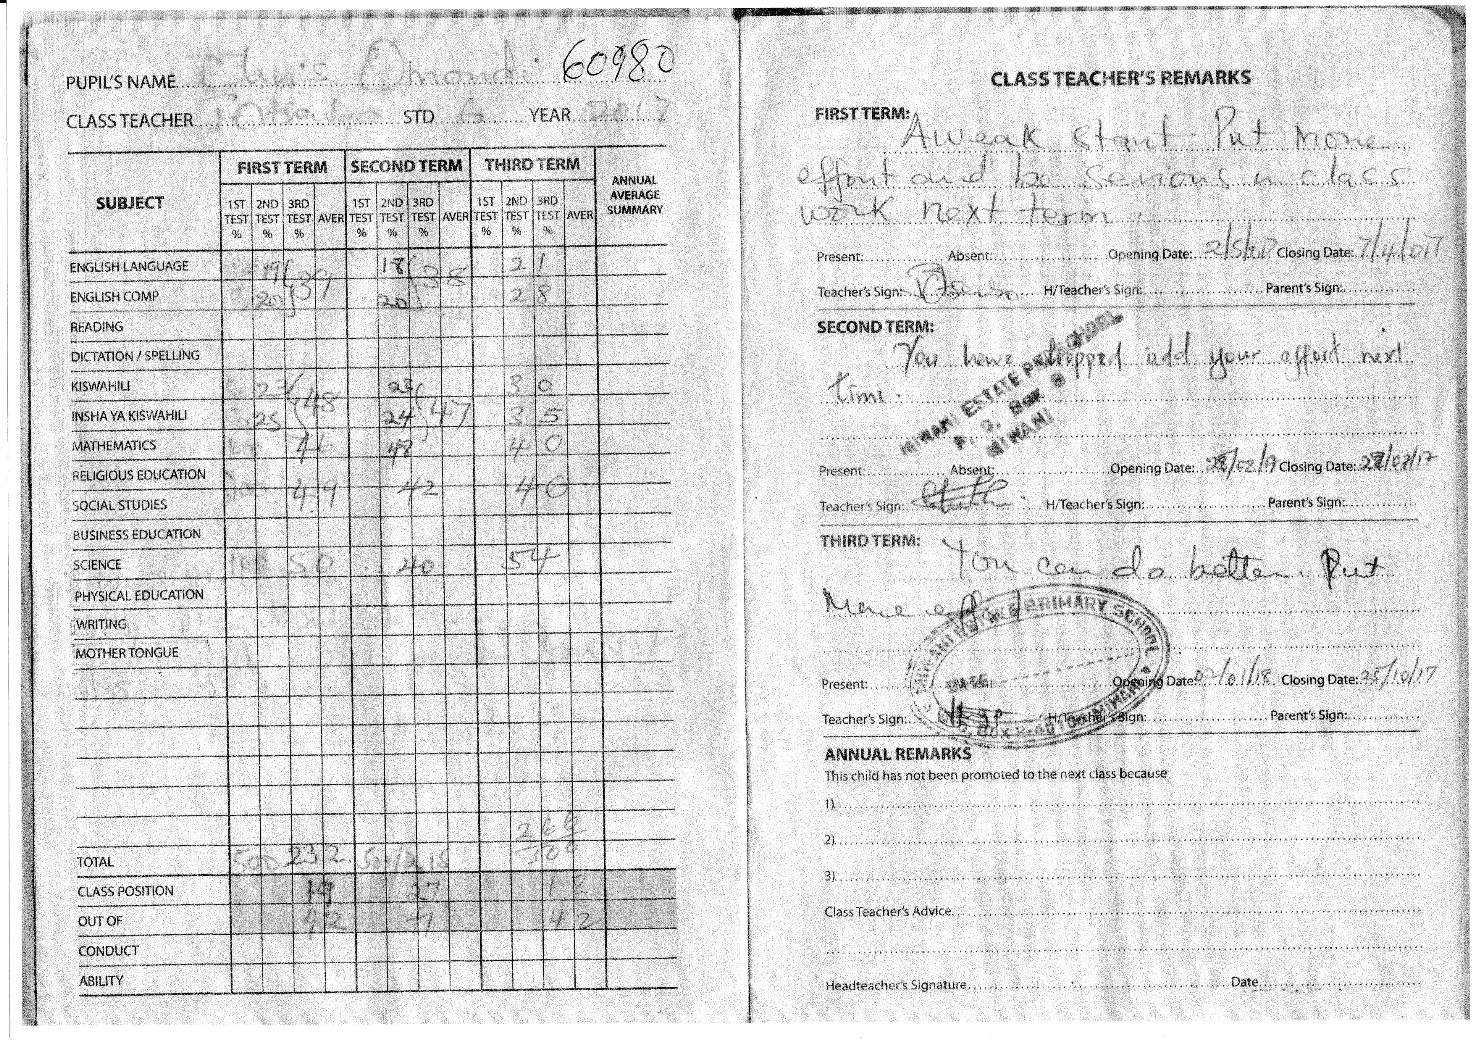 PUPIL'S NAME 60980
CLASS TEACHER STD 6 YEAR 2017
SUBJECT FIRST TERM SECOND TERM THIRD TERM ANNUAL AVERAGE SUMMARY
1ST TEST % 2ND TEST % 3RD TEST % AVER 1ST TEST % 2ND TEST % 3RD TEST % AVER 1ST TEST % 2ND TEST % 3RD TEST % AVER
ENGLISH LANGUAGE 19 39 18 38 21
ENGLISH COMP 20 20 28
READING
DICTATION / SPELLING
KISWAHILI 23 48 23 47 30
INSHA YA KISWAHILI 25 24 35
MATHEMATICS 46 48 40
RELIGIOUS EDUCATION 49 42 40
SOCIAL STUDIES
BUSINESS EDUCATION
SCIENCE 50 40 54
PHYSICAL EDUCATION
WRITING
MOTHER TONGUE
TOTAL 500 232
CLASS POSITION 19 27
OUT OF 42 42
CONDUCT
ABILITY
CLASS TEACHER'S REMARKS
FIRST TERM: A weak start. Put more
effort and be serious in class
work next term
Present: Absent: Opening Date: 2/5/17 Closing Date: 7/4/017
Teacher's Sign: H/Teacher's Sign: Parent's Sign:
SECOND TERM:
You have dropped add your effort next
time.
MIWANI ESTATE PRI. SCHOOL
P. O. Box
MIWANI
Present: Absent: Opening Date: Closing Date:
Teacher's Sign: H/Teacher's Sign: Parent's Sign:
THIRD TERM: You can do better. Put
More effort
MIWANI ESTATE PRIMARY SCHOOL
Present: Opening Date: 02/01/18 Closing Date: 25/10/17
Teacher's Sign: H/Teacher's Sign: Parent's Sign:
ANNUAL REMARKS
This child has not been promoted to the next class because
1)
2)
3)
Class Teacher's Advice
Headteacher's Signature Date